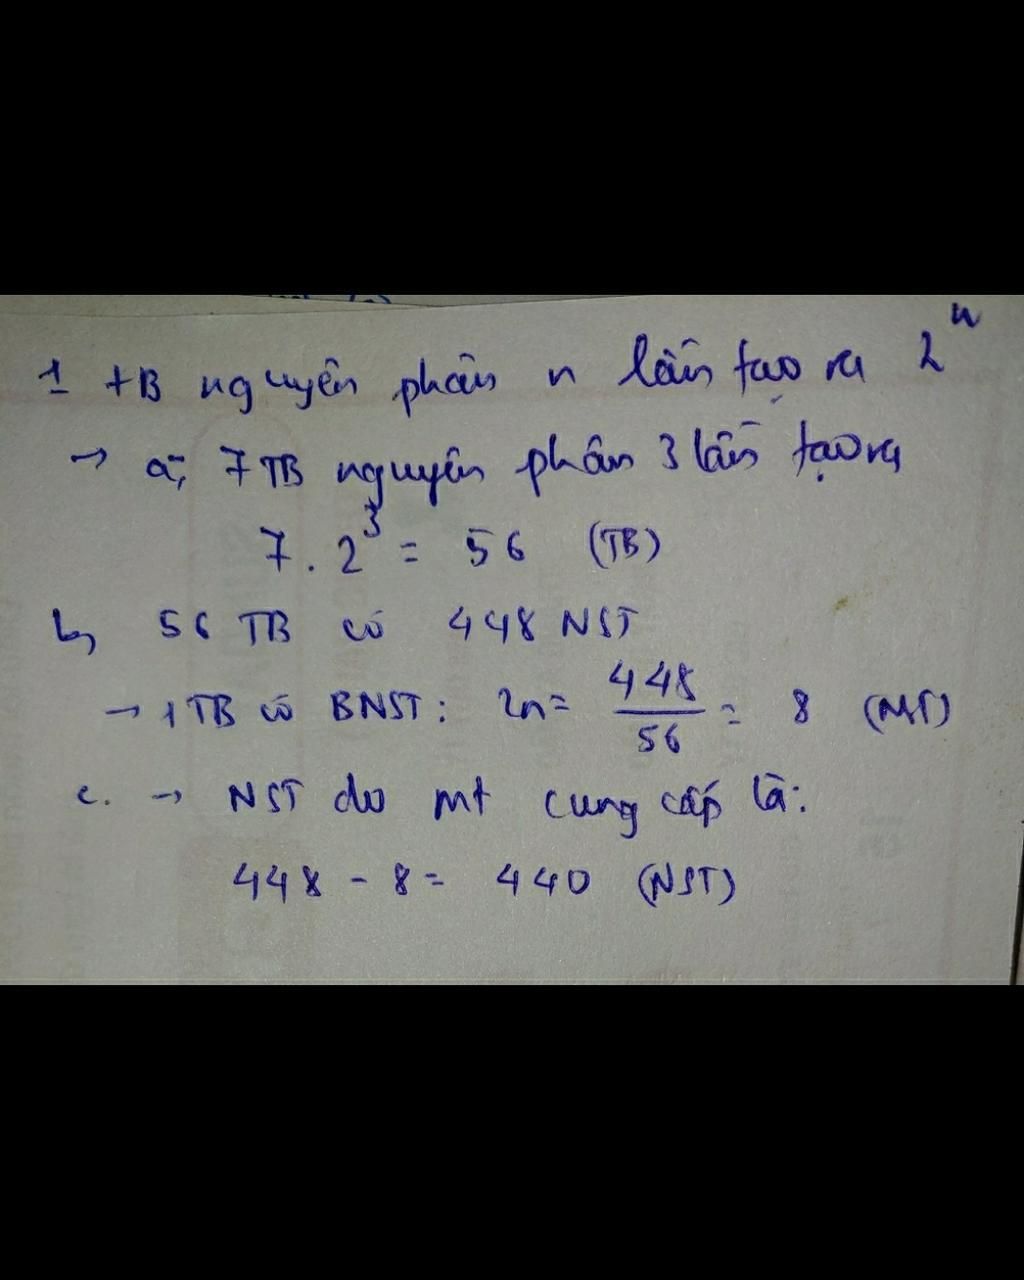 1 TB nguyên phân n lần tạo ra 2^n
→ a, 7 TB nguyên phân 3 lần tạo ra
7 . 2^3 = 56 (TB)
b, 56 TB có 448 NST
→ 1 TB có BNST: 2n = 448/56 = 8 (NST)
c. → NST do mt cung cấp là:
448 - 8 = 440 (NST)